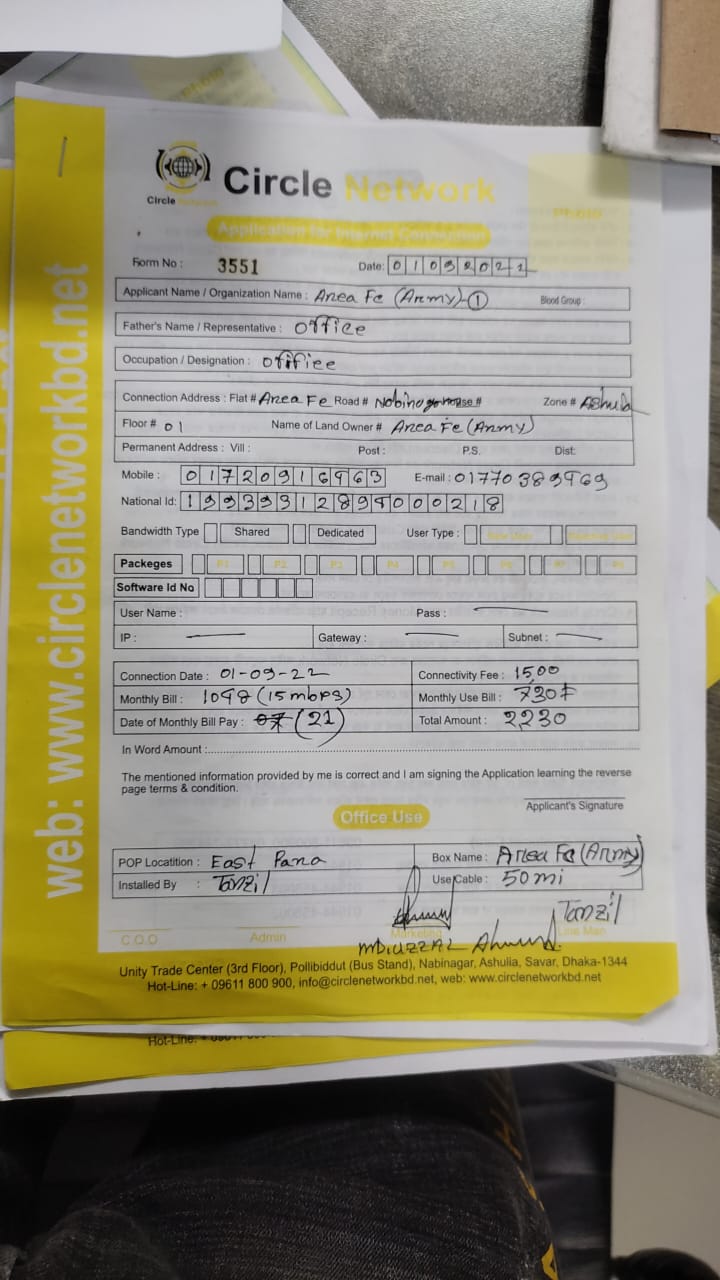 Circle Network
Circle
Application for Internet Connection
Photo
Form No : 3551 Date: 01092022
Applicant Name / Organization Name : Area Fe (Army)-1 Blood Group :
Father's Name / Representative : office
Occupation / Designation : offiee
Connection Address : Flat # Area Fe Road # House # Zone # Ashulia
Floor # 01 Name of Land Owner # Area Fe (Army)
Permanent Address : Vill : Post : P.S. Dist:
Mobile : 01720916963 E-mail : 01770389969
National Id:
Bandwidth Type Shared Dedicated User Type :
Packeges P1 P2 P3 P4 P5 P6 P7 P8
Software Id No
User Name : Pass :
IP : Gateway : Subnet :
Connection Date : 01-09-22 Connectivity Fee : 1500
Monthly Bill : 1098 (15 mbps) Monthly Use Bill : 730
Date of Monthly Bill Pay : (21) Total Amount : 2230
In Word Amount :
The mentioned information provided by me is correct and I am signing the Application learning the reverse
page terms & condition.
Applicant's Signature
Office Use
POP Locatition : East Para Box Name : Area Fe (Army)
Installed By : Tanzil Use Cable : 50 mi
Tanzil
C.O.O Admin Marketing Line Man
MD. UZZAL Ahmed
Unity Trade Center (3rd Floor), Pollibiddut (Bus Stand), Nabinagar, Ashulia, Savar, Dhaka-1344
Hot-Line: + 09611 800 900, info@circlenetworkbd.net, web: www.circlenetworkbd.net
web: www.circlenetworkbd.net
Hot-Line: